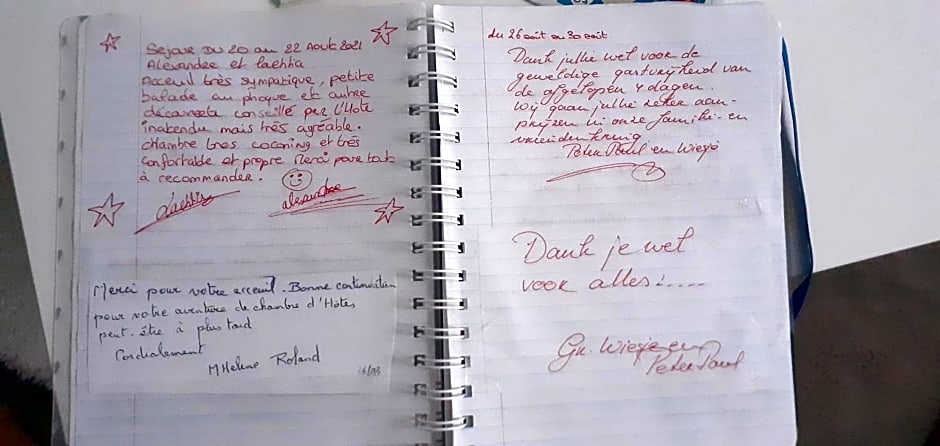 Sejour Du 20 au 22 Aout 2021
Alexandre et laetitia
Acceuil très sympatique, petite
balade au phoque et autre
décourte conseillé par l'Hote
inatendu mais très agréable.
chambre tres cocooning et très
confortable et propre Merci pour tout
à recommander.
laetitia alexandre
Merci pour votre acceuil. Bonne continuation
pour votre aventure de chambre d'Hôtes
peut-être à plus tard
Cordialement
M Helene Roland
16/08
du 26 août au 30 août
Dank jullie wel voor de
geweldige gastvrijheid van
de afgelopen 4 dagen.
Wij gaan jullie zeker aan-
prijzen in onze familie- en
vriendenkring
Peter Paul en Wiesje
Dank je wel
voor alles!.....
Gr. Wiesje en
Peter Paul